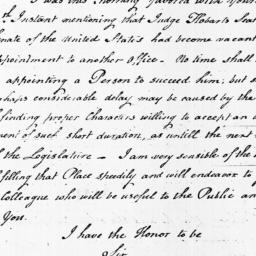 I was this Morning favored with Your
th Instant mentioning that Judge Hobarts Seat
nate of the United States had become vacant
ppointment to another Office - No time shall
appointing a Person to succeed him; but s
haps considerable delay may be caused by the
finding proper Characters willing to accept an a
ment of such short duration, as untill the next
f the Legislature - I am very sensible of the
filling that Place speedily and will endeavor to f
Colleague who will be useful to the Public an
You.
I have the Honor to be
Sir